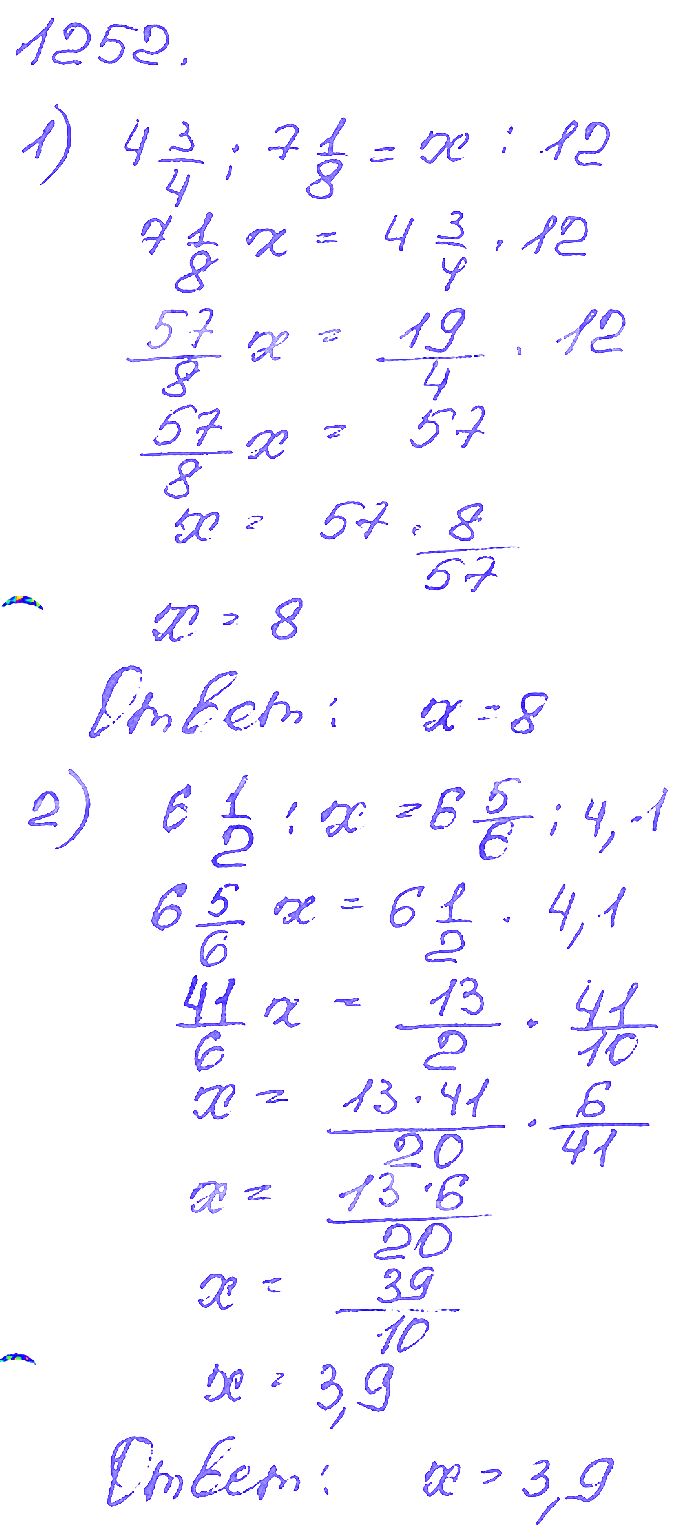 1252.
1) 4 3/4 : 7 1/8 = x : 12
7 1/8 x = 4 3/4 · 12
57/8 x = 19/4 · 12
57/8 x = 57
x = 57 · 8/57
x = 8
Ответ: x = 8
2) 6 1/2 : x = 6 5/6 : 4,1
6 5/6 x = 6 1/2 · 4,1
41/6 x = 13/2 · 41/10
x = 13·41/20 · 6/41
x = 13·6/20
x = 39/10
x = 3,9
Ответ: x = 3,9